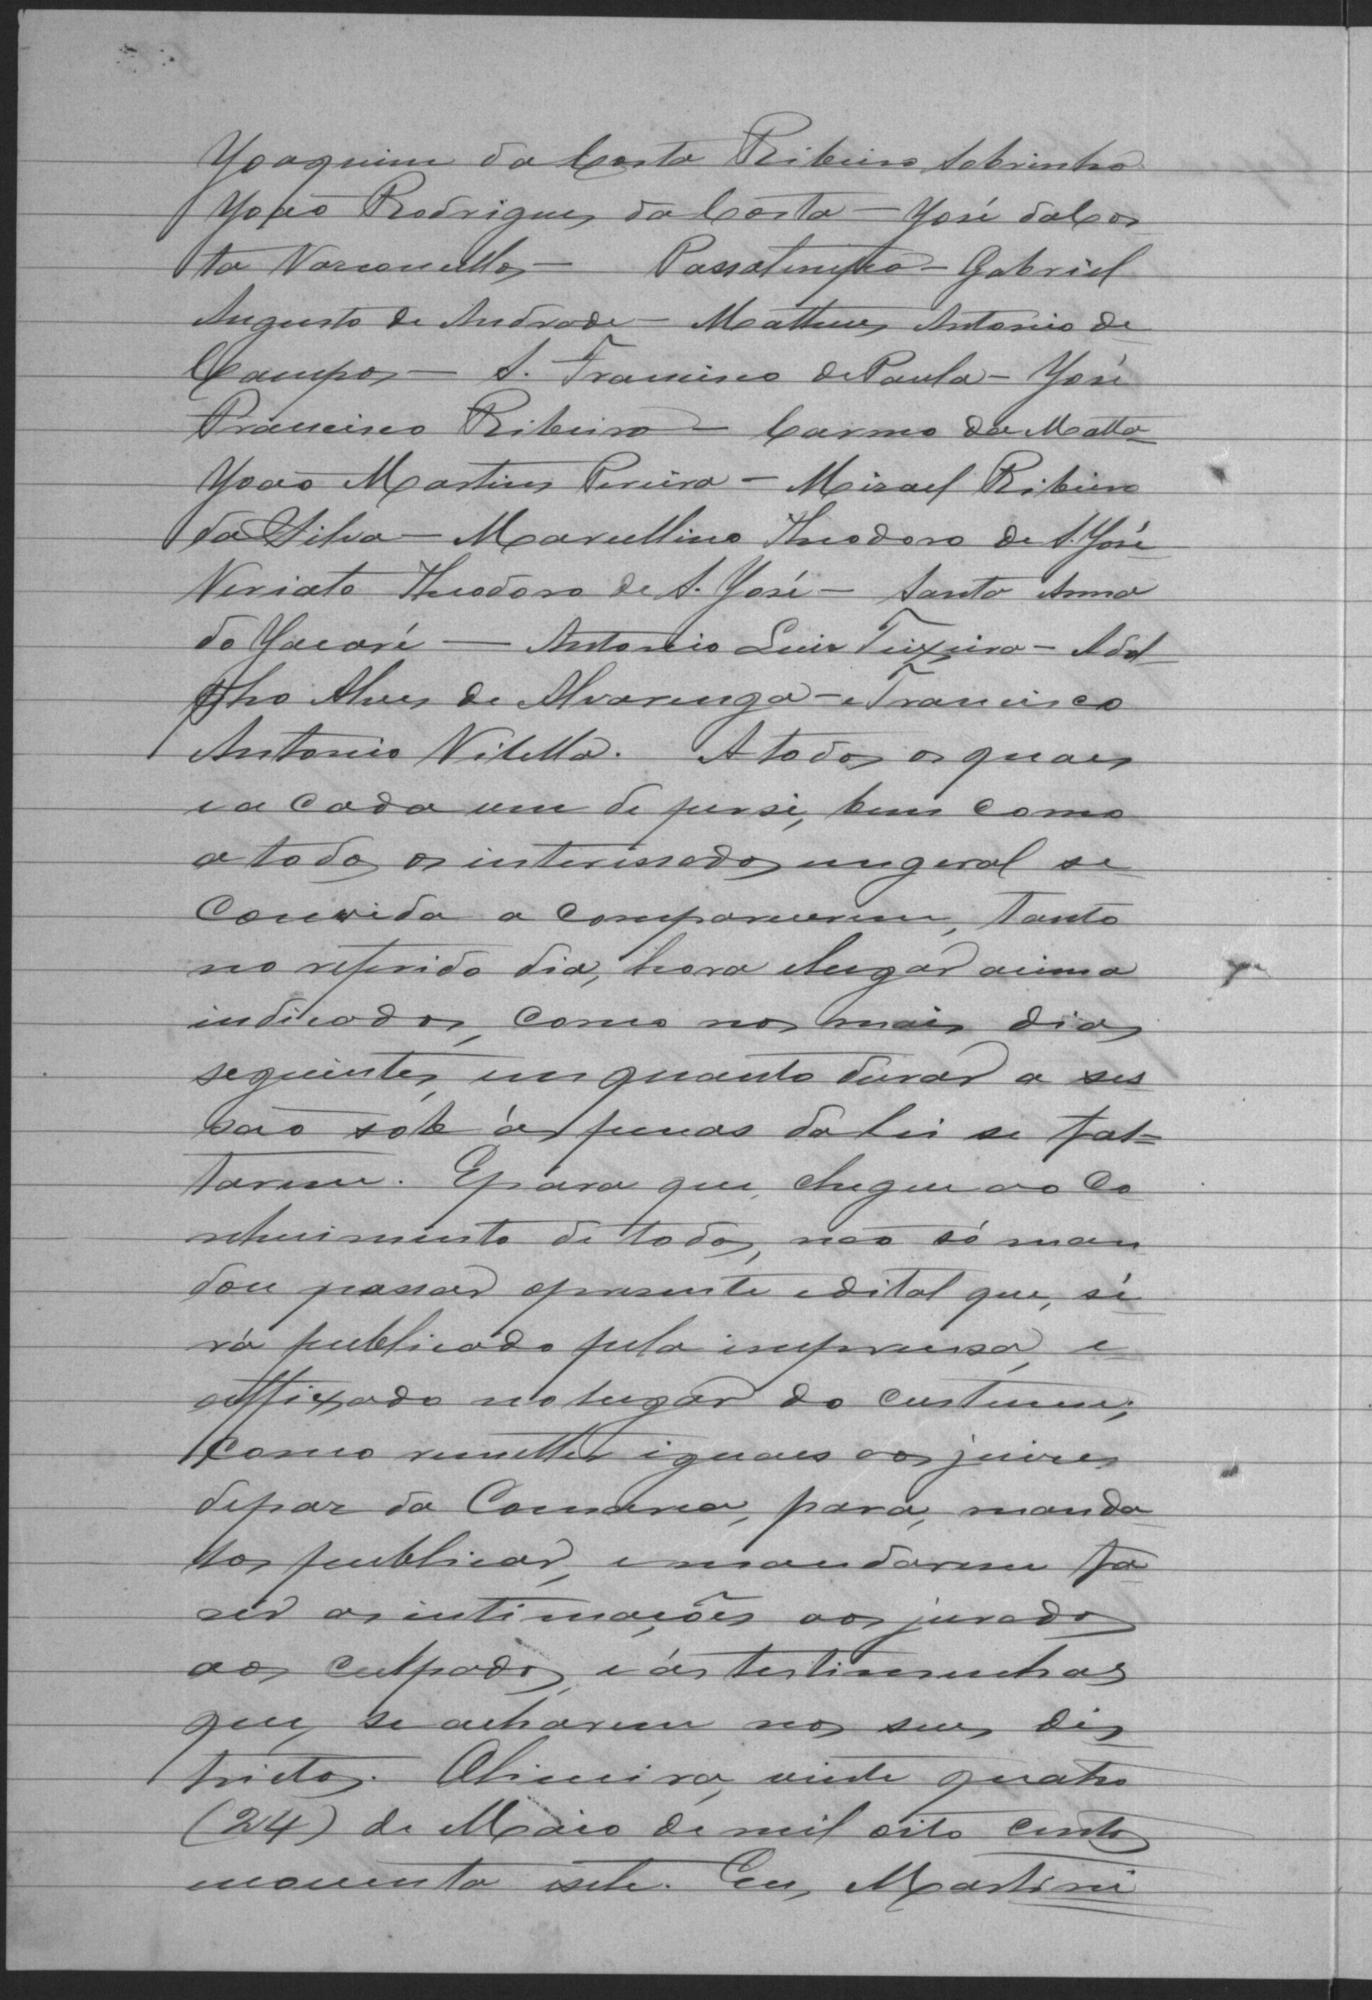 Joaquim da Costa Ribeiro Sobrinho
João Rodrigues da Costa – José da Cos
ta Vasconcellos – Passatempo – Gabriel
Augusto de Andrade – Matheus Antonio de
Campos – S. Francisco de Paula – José
Francisco Ribeiro – Carmo da Matta –
João Martins Pereira – Misael Ribeiro
da Silva – Marcellino Theodoro de S. José
Veriato Theodoro de S. José – Santa Anna
do Jacaré – Antonio Luiz Teixeira – Adol
pho Alves de Alvarenga – e Francisco
Antonio Vilella. A todos os quaes
e a cada um de persi, bem como
a todos os interessados em geral se
convida a comparecerem, tanto
no referido dia, hora e lugar acima
indicados, como nos mais dias
seguintes, em quanto durar a ses
são sob ás penas da lei se fal=
tarem. E para que, chegue ao co
nhecimento de todos, não só man
dou passar o presente edital que, se
rá publicado pela imprensa, e
affixado no lugar do custume;
como remetter iguaes aos juizes
de paz da Comarca, para, manda
los publicar, e mandarem fa
zer as intimações aos jurados
aos culpados, e ás testimunhas
que, se acharem nos seus dis
trictos. Oliveira, vinte quatro
(24) de Maio de mil oito centos
noventa sete. Eu, Martini